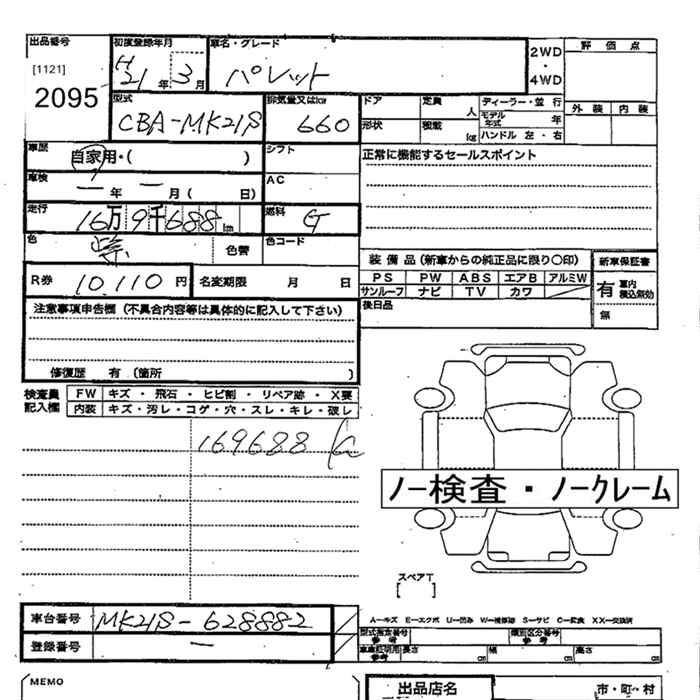 出品番号 初度登録年月 車名・グレード 2WD・4WD 評価点
[1121] H21年3月 パレット
2095
型式 排気量又はkw ドア 定員 人 ディーラー・並行 外装 内装
CBA-MK21S 660 形状 積載 kg モデル年式 年
ハンドル 左・右
車歴 自家用・( ) シフト 正常に機能するセールスポイント
車検 ー年ー月( 日) AC
走行 16万9千688km 燃料 G
色 紫 色替 色コード 装備品(新車からの純正品に限り〇印) 新車保証書
R券 10,110円 名変期限 月 日 PS PW ABS エアB アルミW 有 車内積込無効
サンルーフ ナビ TV カワ
注意事項申告欄(不具合内容等は具体的に記入して下さい) 後日品 無
修復歴 有 (箇所 )
検査員記入欄 FW キズ・飛石・ヒビ割・リペア跡・X要
内装 キズ・汚レ・コゲ・穴・スレ・キレ・破レ
169688
ノー検査・ノークレーム
スペアT
[ ]
車台番号 MK21S-628882 A―キズ E―エクボ U―凹ミ W―補修跡 S―サビ C―腐食 XX―交換済
型式指定番号 参考 類別区分番号 参考
登録番号 ー 車庫証明用 参考 長さ cm 幅 cm 高さ cm
MEMO 出品店名 市・町・村